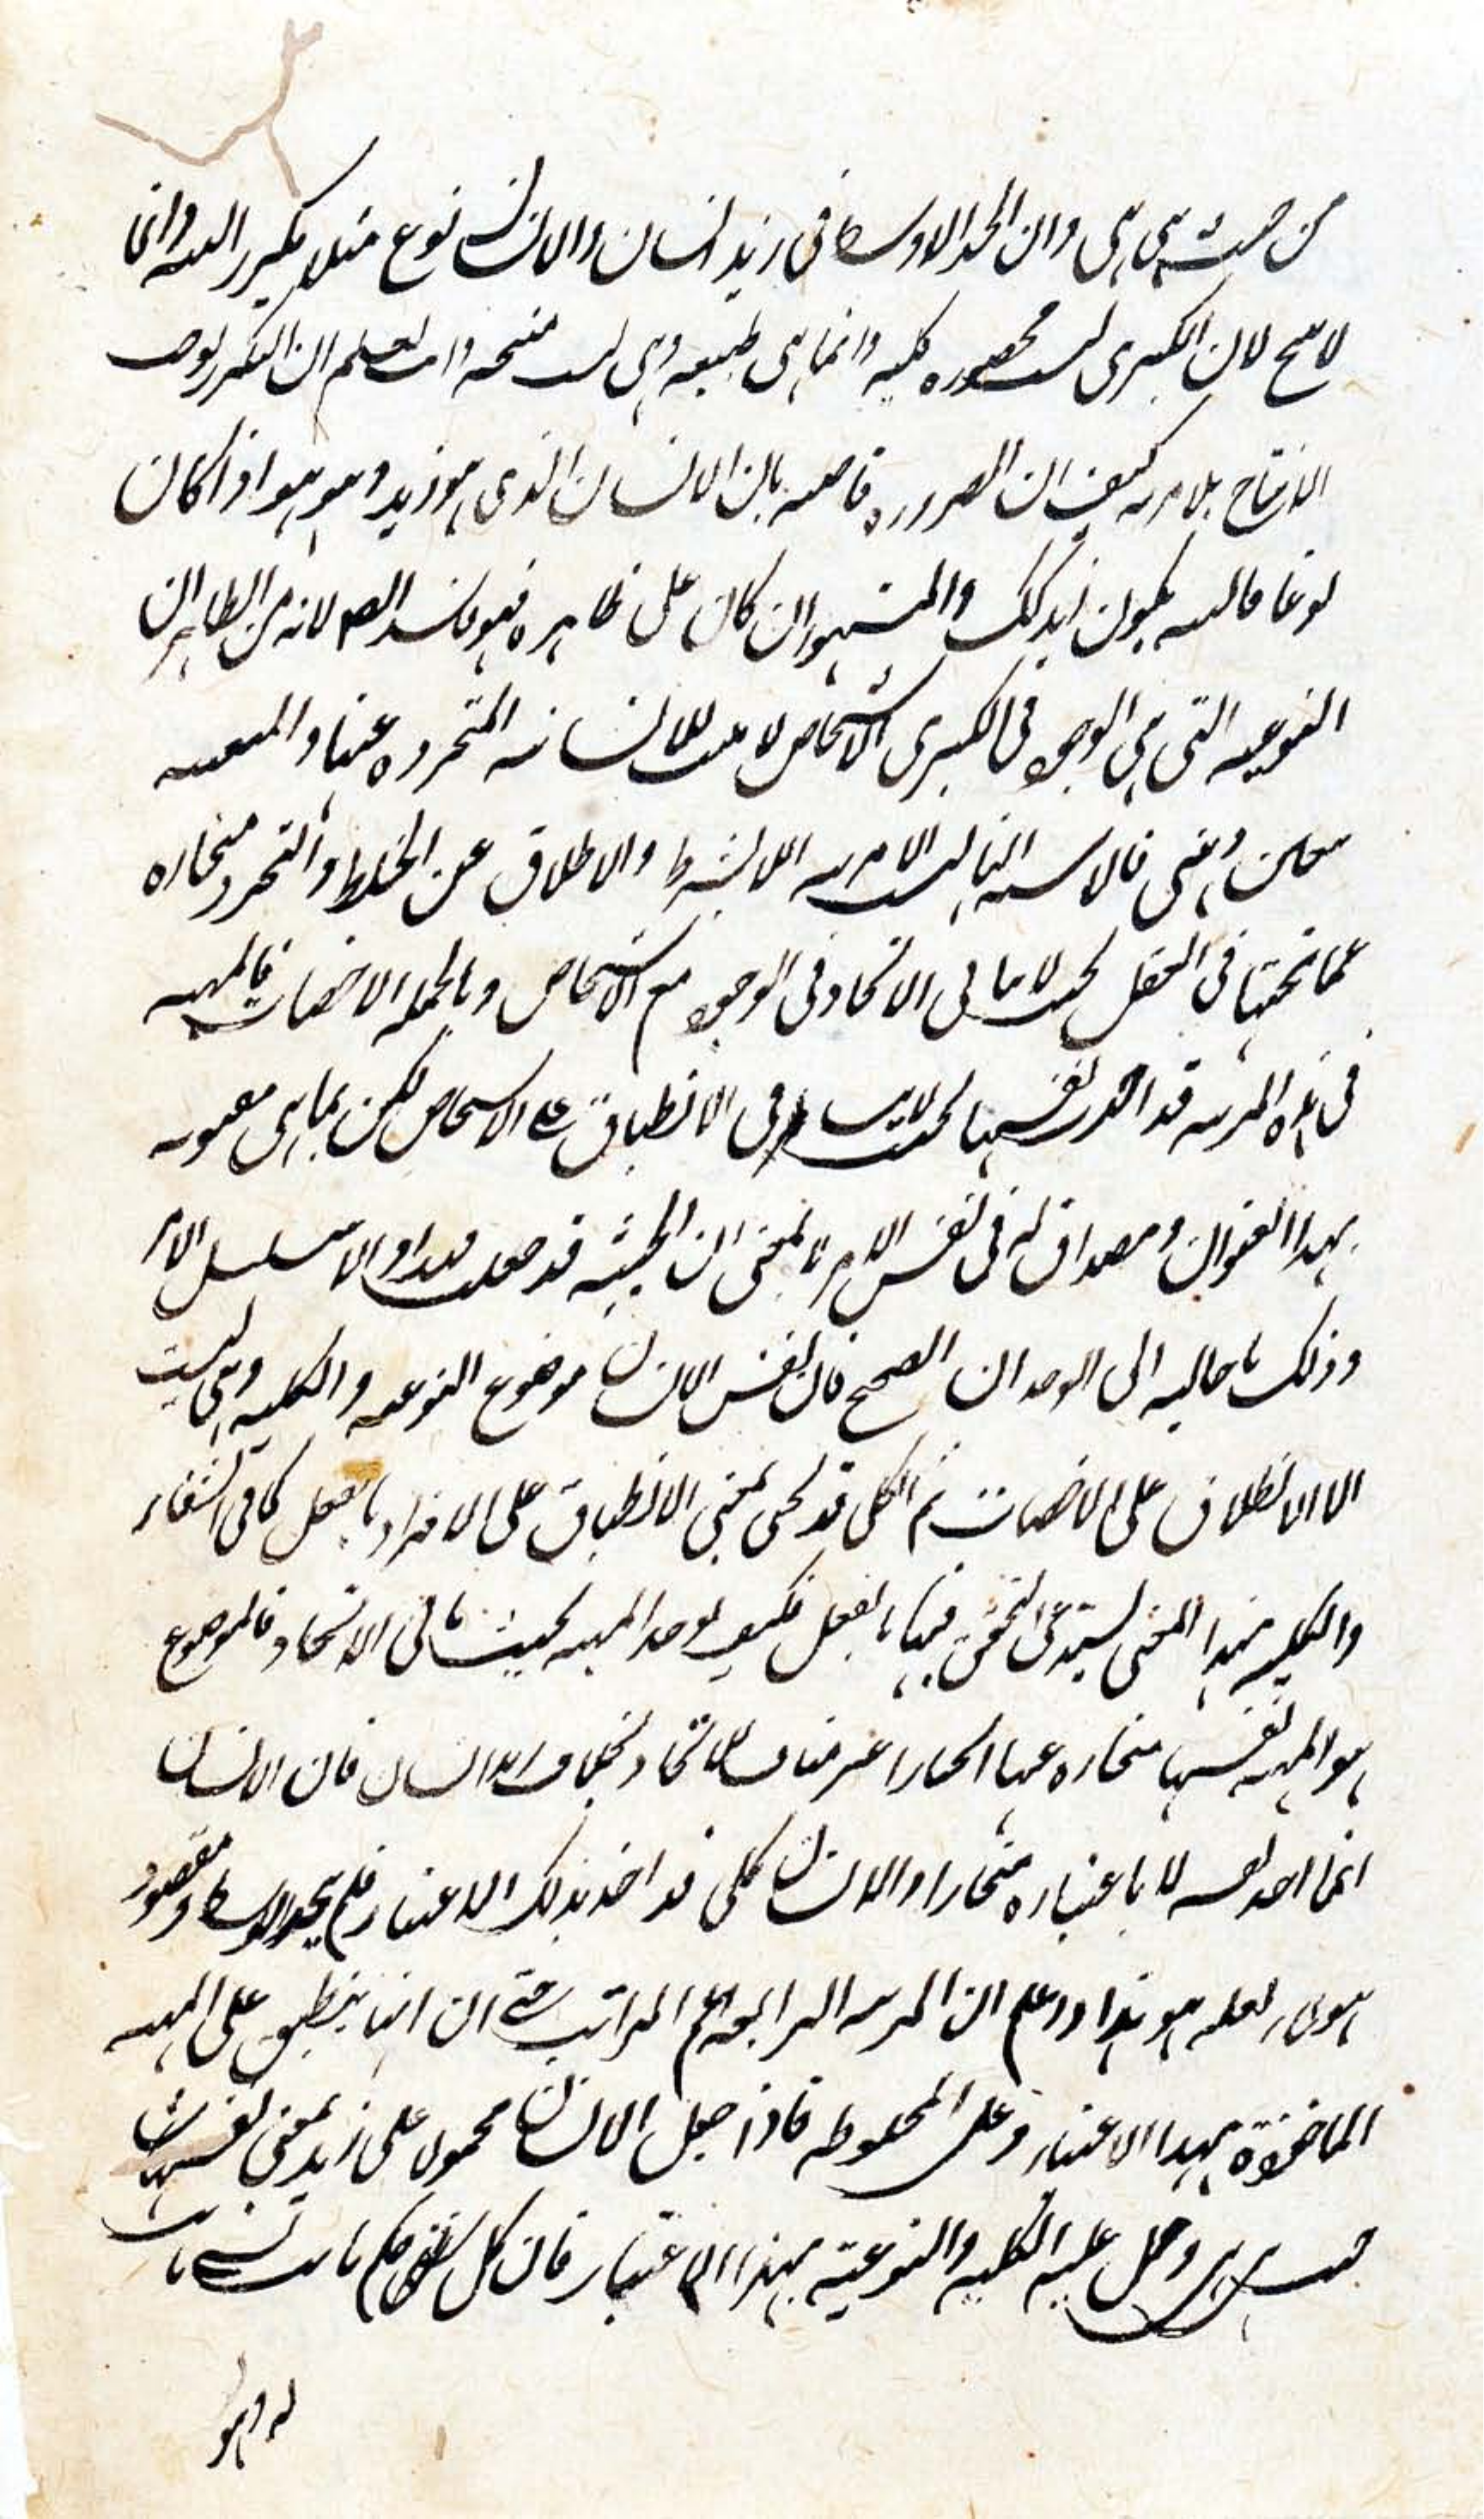 من حيث هي هي وان الحد الاوسط في زيد انسان والانسان نوع مثلا يتكرر البته وانما
لا ينتج لان الكبرى ليست محصوره كليه وانما هي طبيعيه وهي ليست منتجه وانت تعلم ان التكرر يوجب
الانتاج بلا مريه كيف ان الضروره قاضيه بان الانسان الذي هو زيد وهو هو اذا كان
نوعا فالبته يكون زيد كذلك والمشهور ان كان على ظاهره فهو فاسد البته لانه من الظاهر ان
النوعيه التي هي الوجود في الكبرى الاشخاص لا يثبت للانسانيه المتجرده عنها والمتعينه
بتعين ذهني فالاشبه انها ليست الا مرتبه اللابشرط والاطلاق عن الخلط والتجرد منحازه
عما تحتها في العقل بحيث لا ينافي الاتحاد في الوجود مع الاشخاص وبالجمله الاخصيات فالمهيه
في هذه المرتبه قد اخذت نفسها بحيث لا ينافي الانطباق على الاشخاص لكن بما هي معنونه
بهذا العنوان ومصداق له في نفس الامر لا بمعنى ان الحيثيه قد جعلت قيدا والا تسلسل الامر
وذلك باحاليه الى الوجدان الصحيح فان نفس الانسان موضوع النوعيه والكليه وهي ليست
الا الانطلاق على الاخصيات ثم الكلي قد يجئ بمعنى الانطباق على الافراد بالفعل كما في الشفاء
والكليه بهذا المعنى يستدعي التحقق فيها بالفعل فكيف يوجد المهيه بحيث ينافي الاتحاد فالموضوع
هو المهيه نفسها منحازه عنها انحيازا غير مناف للاتحاد بخلاف زيد انسان فان الانسان
انما اخذ نفسه لا باعتباره منحازا والانسان كلي قد اخذ بذلك الاعتبار فلم يتحد الاوسط ومقصود
هؤلاء لعله هو هذا واعلم ان المرتبه الرابعه اعم المراتب حتى ان انها ينطبق على المهيه
الماخوذة بهذا الاعتبار وعلى المخلوطه فاذا جعل الانسان محمولا على زيد بمعنى نفسها
حيث هي هي وحمل عليه الكليه والنوعيه بهذا الاعتبار فان كل حكم
له وهو